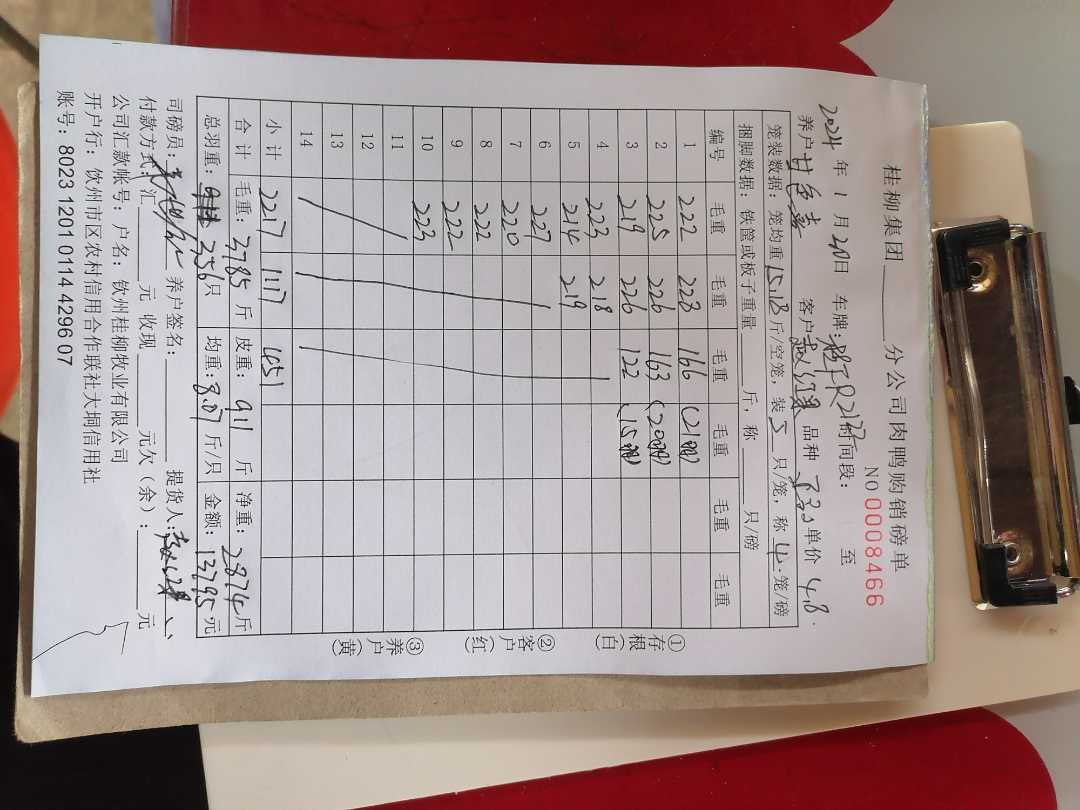 桂柳集团 分公司肉鸭购销磅单
NO 0008466
2024 年 1 月 20日 车牌: R2122 时间段: 至
养户 甘 客户 赵 品种 单价 4.8
笼装数据: 笼均重 15.18 斤/空笼, 装 5 只/笼, 称 4 笼/磅
捆脚数据: 铁筐或板子重量 斤, 称 只/磅
编号 毛重 毛重 毛重 毛重 毛重 毛重
1 222 228 166 (21)
2 225 226 163 (20)
3 219 226 122 (15)
4 223 218
5 214 219
6 227
7 220
8 222
9 222
10 223
11
12
13
14
小计 2217 1117 451
合计 毛重: 3785 斤 皮重: 911 斤 净重: 2874 斤
总羽重: 356只 均重: 8.07 斤/只 金额: 13795 元
司磅员: 养户签名: 提货人:
付款方式: 汇 元 收现 元欠(余): 元
公司汇款帐号: 户名: 钦州桂柳牧业有限公司
开户行: 钦州市区农村信用合作联社大垌信用社
账号: 8023 1201 0114 4296 07
①存根(白)
②客户(红)
③养户(黄)